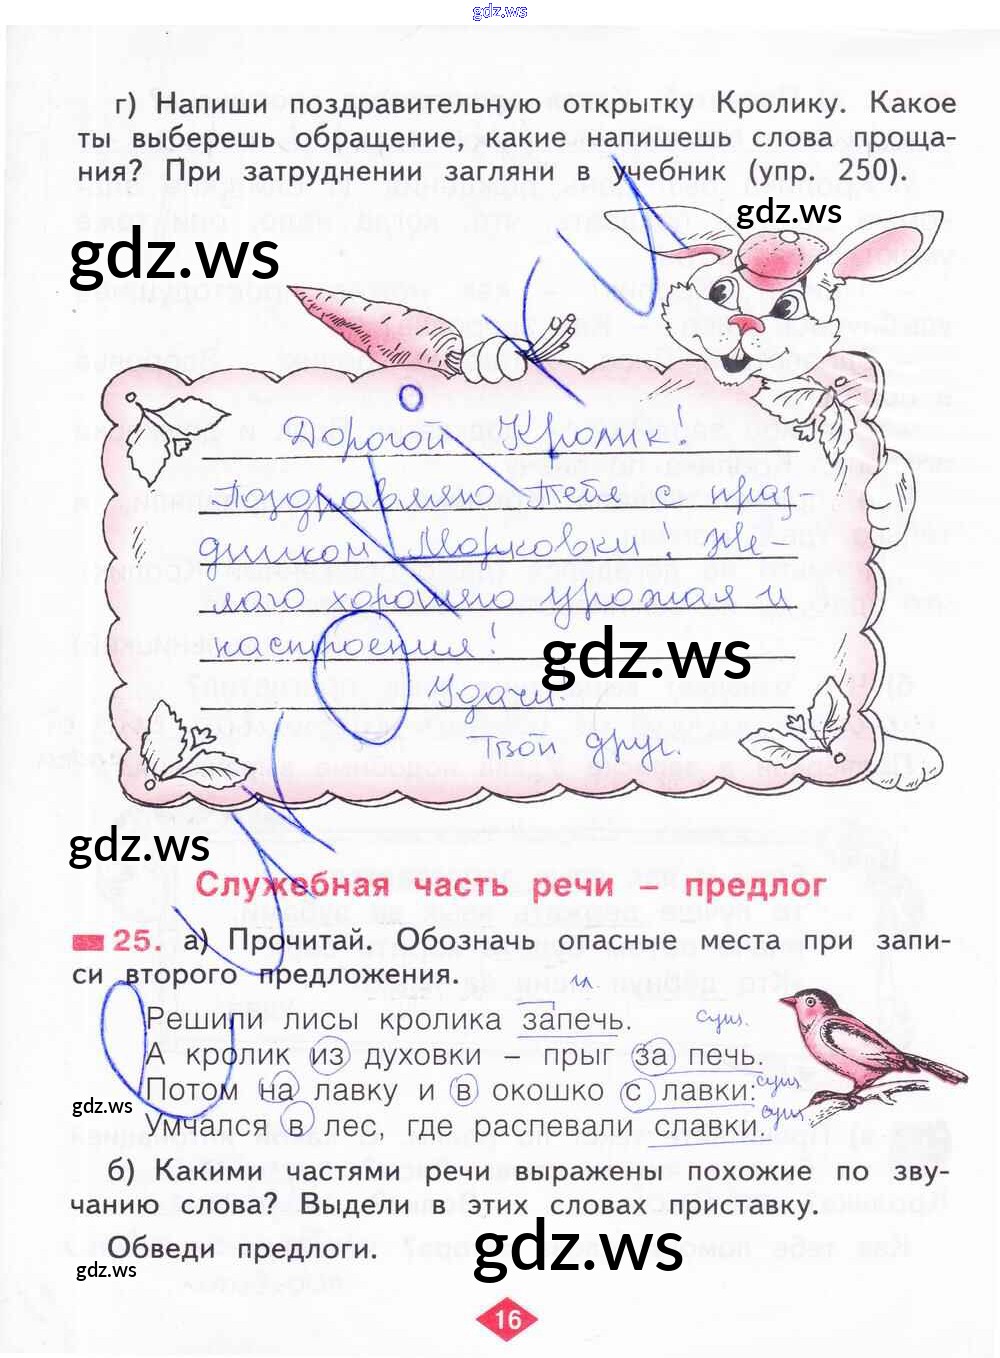 gdz.ws
г) Напиши поздравительную открытку Кролику. Какое
ты выберешь обращение, какие напишешь слова проща-
ния? При затруднении загляни в учебник (упр. 250).
gdz.ws
gdz.ws
Дорогой Кролик!
Поздравляю Тебя с праз-
дником Морковки! Же
лаю хорошего урожая и
настроения!
gdz.ws
Удачи.
Твой друг.
gdz.ws
Служебная часть речи – предлог
25. а) Прочитай. Обозначь опасные места при запи-
си второго предложения.
гл
Решили лисы кролика запечь.
сущ.
А кролик из духовки – прыг за печь.
Потом на лавку и в окошко с лавки:
сущ
gdz.ws
Умчался в лес, где распевали славки.
сущ.
б) Какими частями речи выражены похожие по зву-
чанию слова? Выдели в этих словах приставку.
Обведи предлоги.
gdz.ws
gdz.ws
16